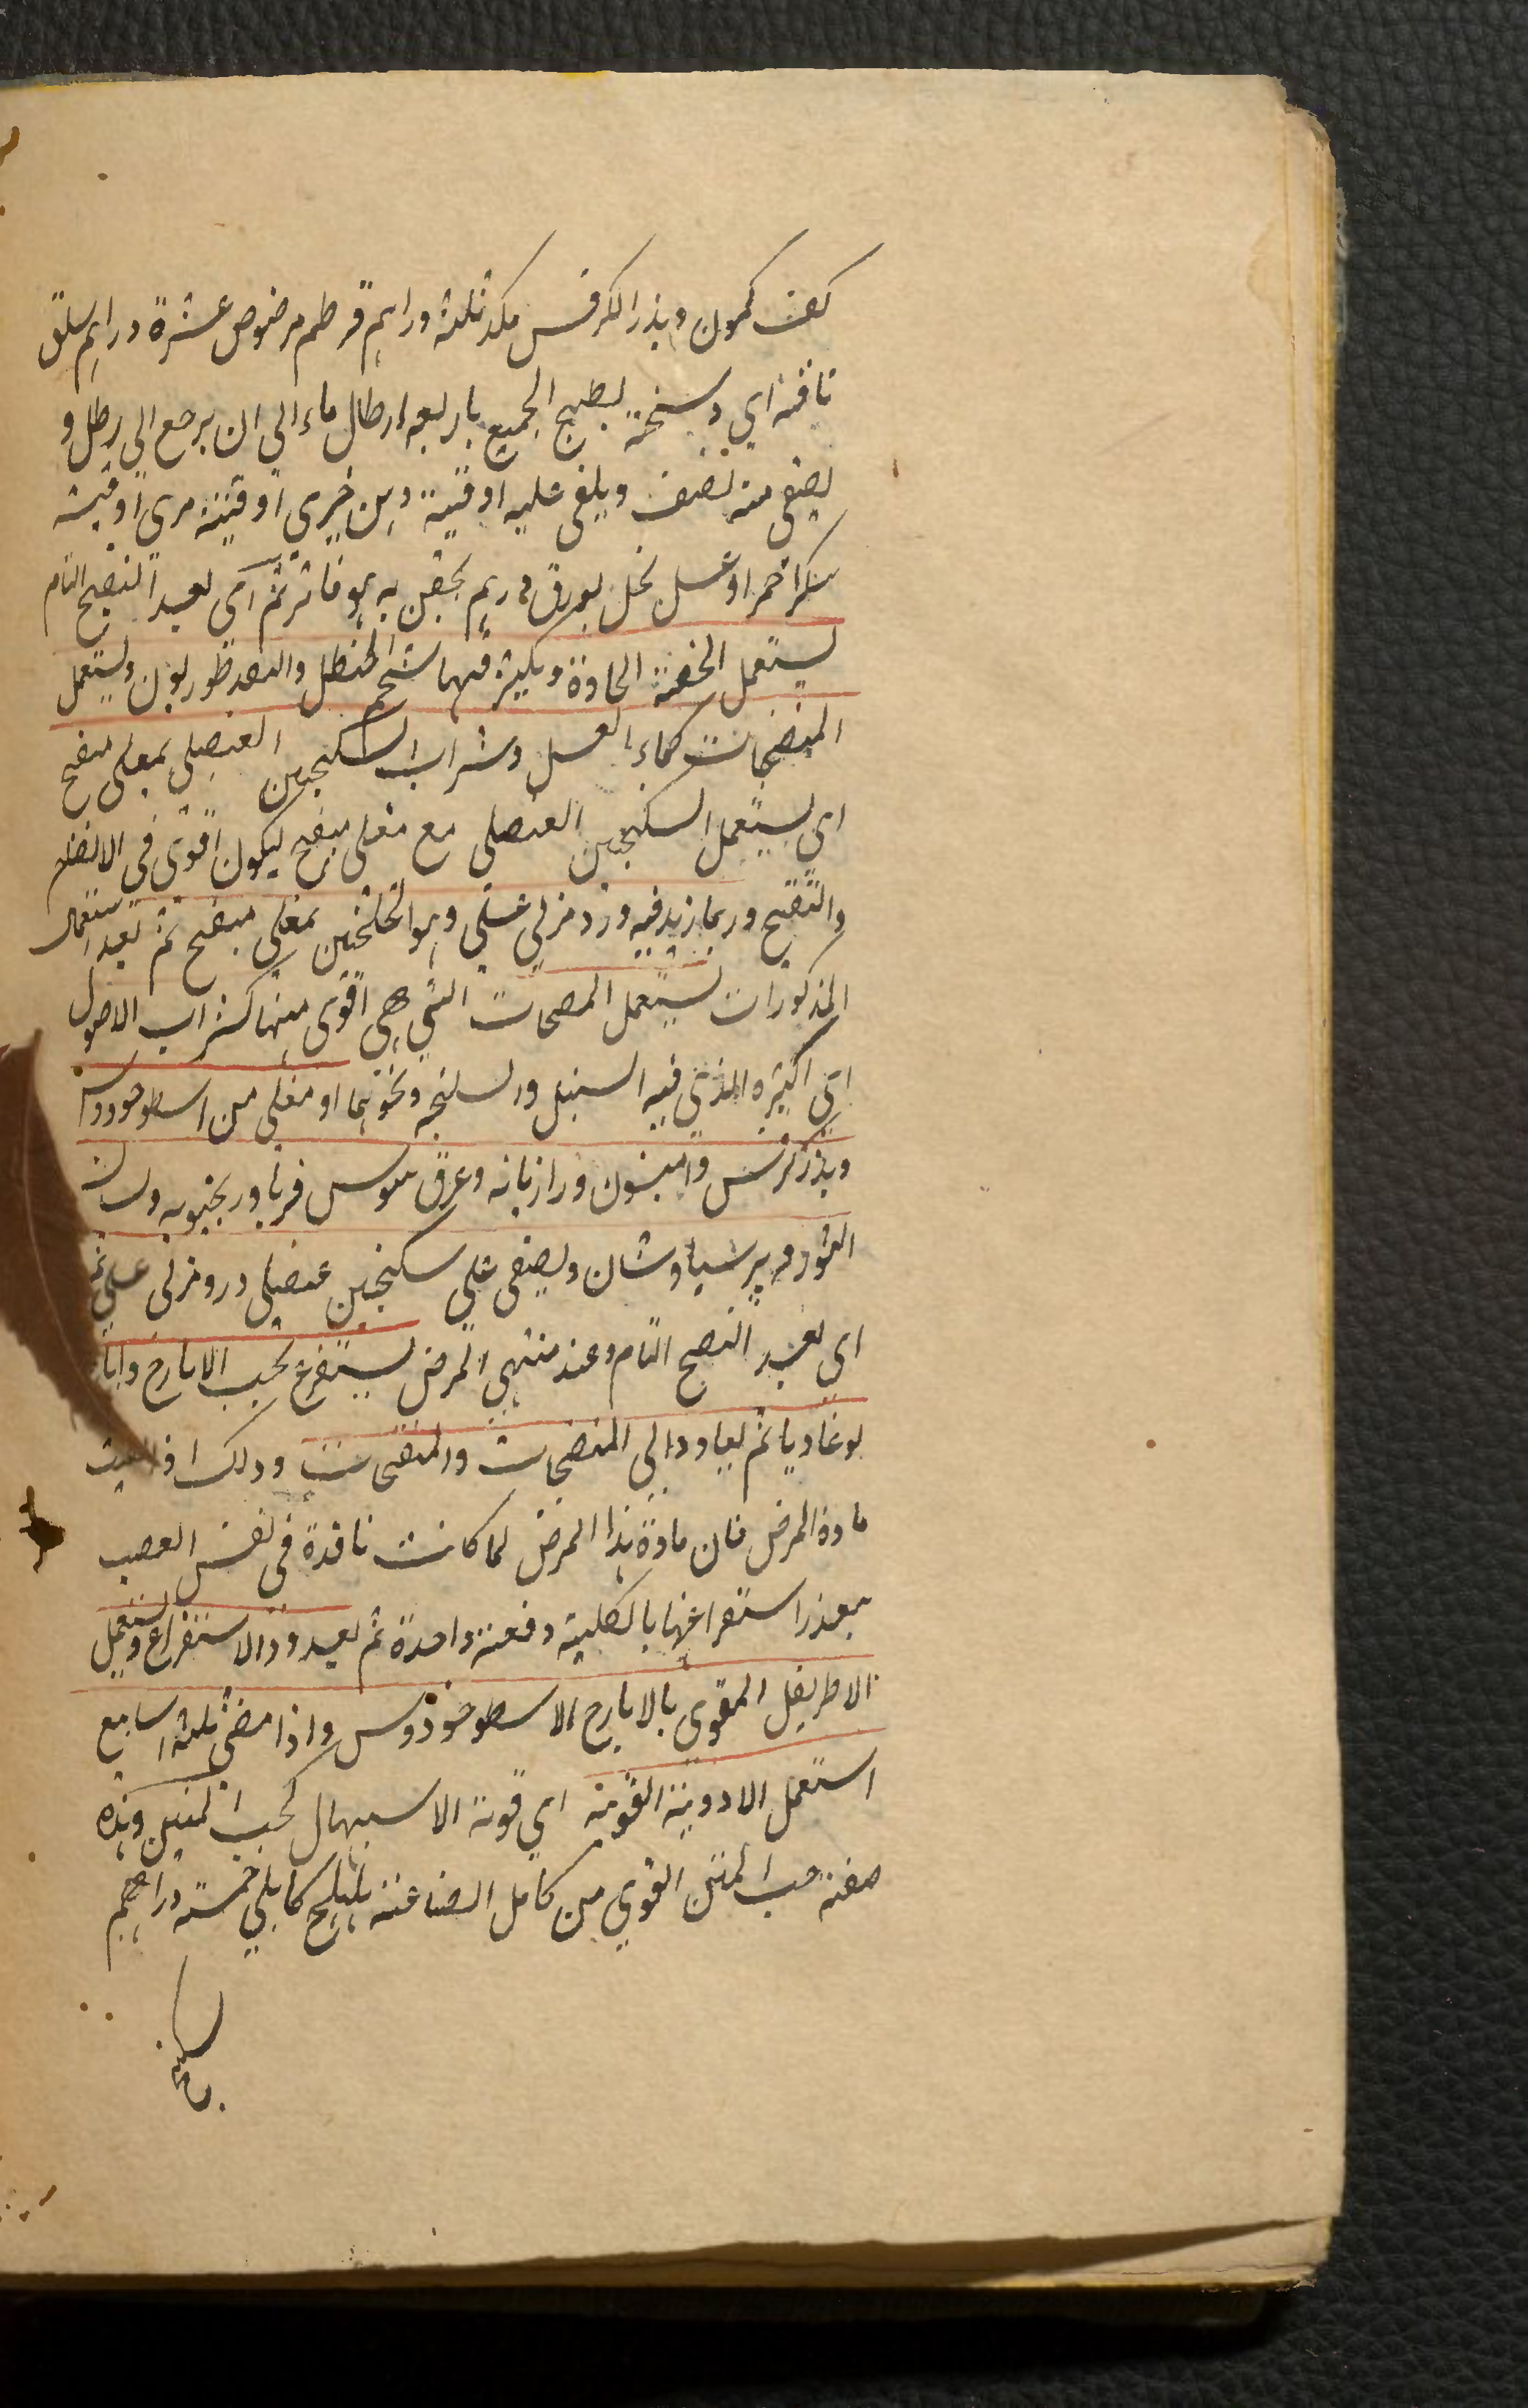 كف كمون وبذر الكرفس مكد ثلثه دراهم قرطم مرضوض عشرة دراهم سلق
تاقه اي دسنخة يطبخ الجميع باربعه ارطال ماء الى ان يرجع الى رطل و
يصفى منه نصف ويلقى عليه اوقية دهن خيرى اوقية مرى اوقية
سكر احمر او عسل نحل بورق درهم يحقن به وهو فاتر ثم اى بعد النضج التام
يستعمل الحقنة الحادة ويكثر فيها شحم الحنطل والقنطوريون ويستعمل
المنضجات كماء العسل وشراب السكنجبين العنصلى بمغلى منضج
اى يستعمل السكنجبين العنصلى مع مغلى منضج ليكون اقوى فى الانضاج
والتقيح وربما زيد فيه ورد مربى عسلى وهو الخلنجبين بمغلى منضج ثم بعد استعمال
المذكورات يستعمل المنضجات التي هي اقوى منها كشراب الاصول
اى اكثره الذي فيه السنبل والسليخه ونحوهما او مغلى من اسطوخودوس
وبذر كرفس وانيسون ورازيانه وعرق سوس وبادرنجبويه ولسان
الثور وپرسياوشان ويصفى على سكنجبين عنصلى وورد مربى عسلي ثم
اى بعد النضج التام وعند منتهى المرض يستفرغ بحب الايارج
لوغاديا ثم يعاود الى المنضجات والمنضجات وذلك
مادة المرض فان مادة هذا المرض لما كانت نافذة فى نفس العصب
يعذر استفراغها بالكلية دفعة واحدة ثم يعيد ود الاستفراغ ويستعمل
الاطريفل المقوى بالايارج الاسطوخودوس واذا مضى ثلثه اسابيع
استعمل الادوية القوية اي قوية الاسهال كحب المنتن وهذه
صفة حب المنتن القوى من كامل الصناعة هليلج كابلي خمسة دراهم